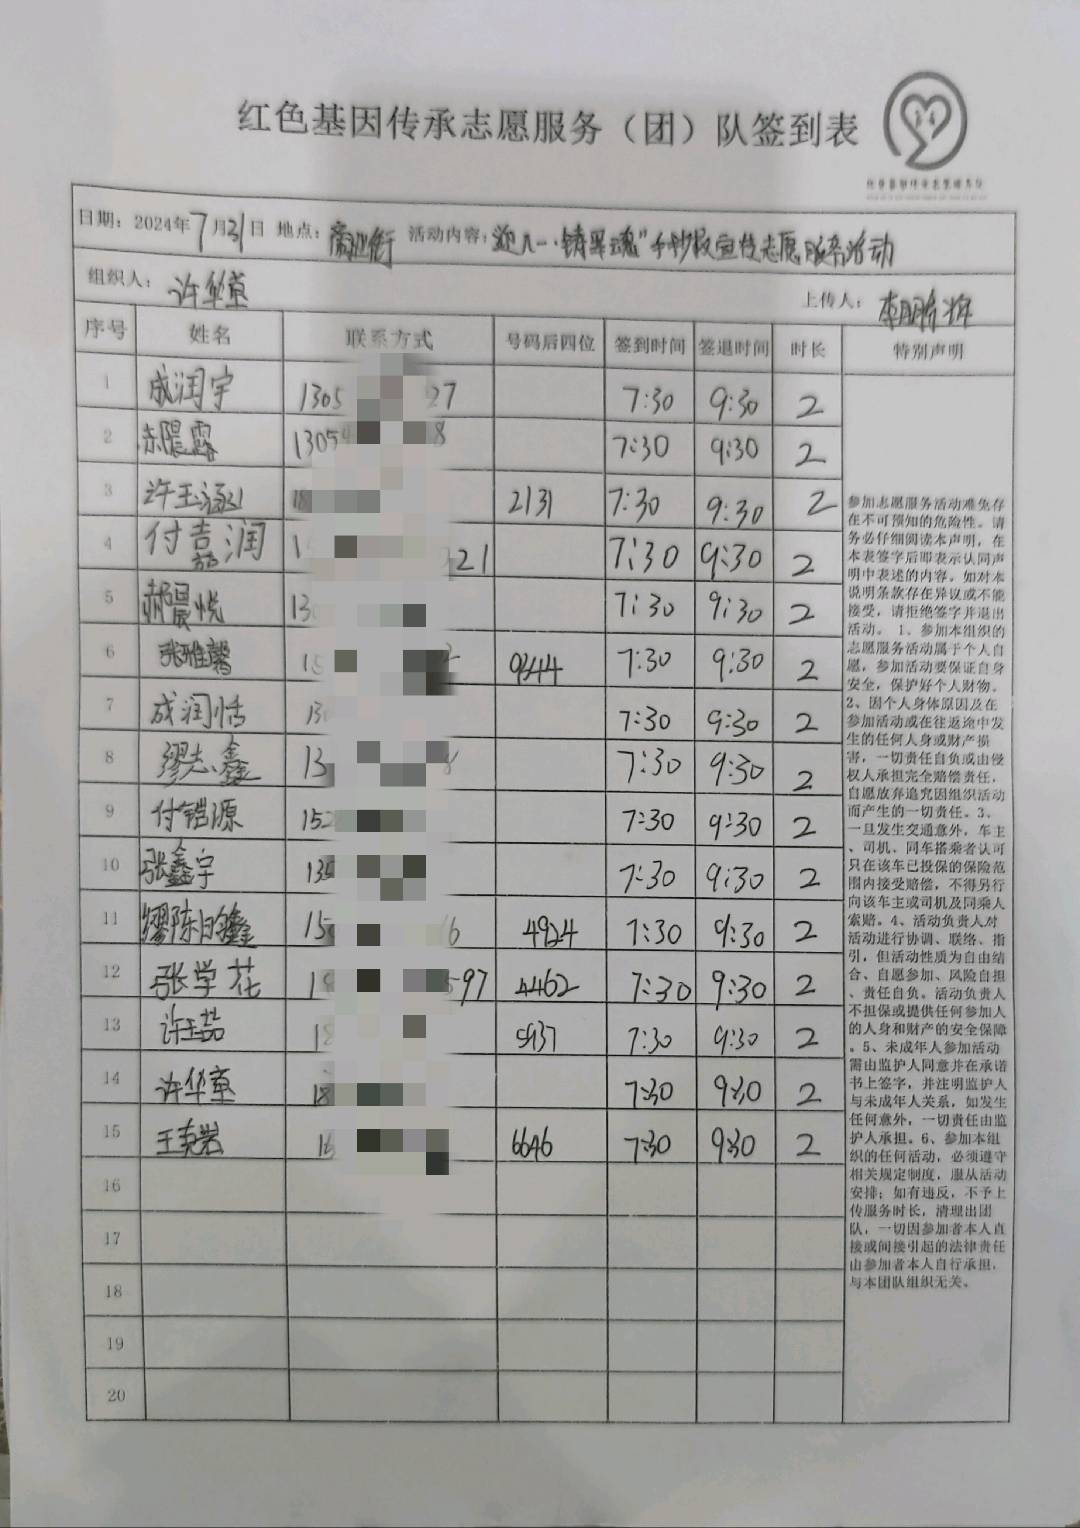 红色基因传承志愿服务（团）队签到表
日期：2024年7月31日 地点：商业街 活动内容：迎八一·铸军魂"手抄报宣传志愿服务活动
组织人：许华章 上传人：李鹏辉
序号 姓名 联系方式 号码后四位 签到时间 签退时间 时长 特别声明
1 成润宇 1305 27 7:30 9:30 2
2 郝晨露 1305 8 7:30 9:30 2
3 许玉涵 18 2131 7:30 9:30 2
4 付喆润 1 21 7:30 9:30 2
5 郝晨悦 130 7:30 9:30 2
6 张雅馨 15 2 9244 7:30 9:30 2
7 成润恬 13 7:30 9:30 2
8 缪志鑫 13 8 7:30 9:30 2
9 付锆源 152 7:30 9:30 2
10 张鑫宇 130 7:30 9:30 2
11 缪陈鑫 15 6 4924 7:30 9:30 2
12 张学花 18 597 4462 7:30 9:30 2
13 许玉茹 18 5937 7:30 9:30 2
14 许华章 18 7:30 9:30 2
15 王奕岩 16 6646 7:30 9:30 2
16
17
18
19
20
参加志愿服务活动难免存
在不可预知的危险性。请
务必仔细阅读本声明，在
本表签字后即表示认同声
明中表述的内容。如对本
说明条款存在异议或不能
接受，请拒绝签字并退出
活动。1、参加本组织的
志愿服务活动属于个人自
愿，参加活动要保证自身
安全，保护好个人财物。
2、因个人身体原因及在
参加活动或在往返途中发
生的任何人身或财产损
害，一切责任自负或由侵
权人承担完全赔偿责任，
自愿放弃追究因组织活动
而产生的一切责任。3、
一旦发生交通意外，车主
、司机、同车搭乘者认可
只在该车已投保的保险范
围内接受赔偿，不得另行
向该车主或司机及同乘人
索赔。4、活动负责人对
活动进行协调、联络、指
引，但活动性质为自由结
合、自愿参加、风险自担
、责任自负。活动负责人
不担保或提供任何参加人
的人身和财产的安全保障
。5、未成年人参加活动
需由监护人同意并在承诺
书上签字，并注明监护人
与未成年人关系，如发生
任何意外，一切责任由监
护人承担。6、参加本组
织的任何活动，必须遵守
相关规定制度，服从活动
安排；如有违反，不予上
传服务时长，清理出团
队，一切因参加者本人直
接或间接引起的法律责任
由参加者本人自行承担，
与本团队组织无关。